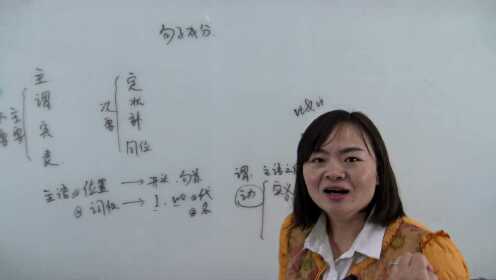 句子成分
主
谓
宾
表
主要
次要
定
状
补
同位
vt & vi
主语 ① 位置 → 开头 句首
② 词性 → 1. 代
② 名
谓: 主语之
动
实义